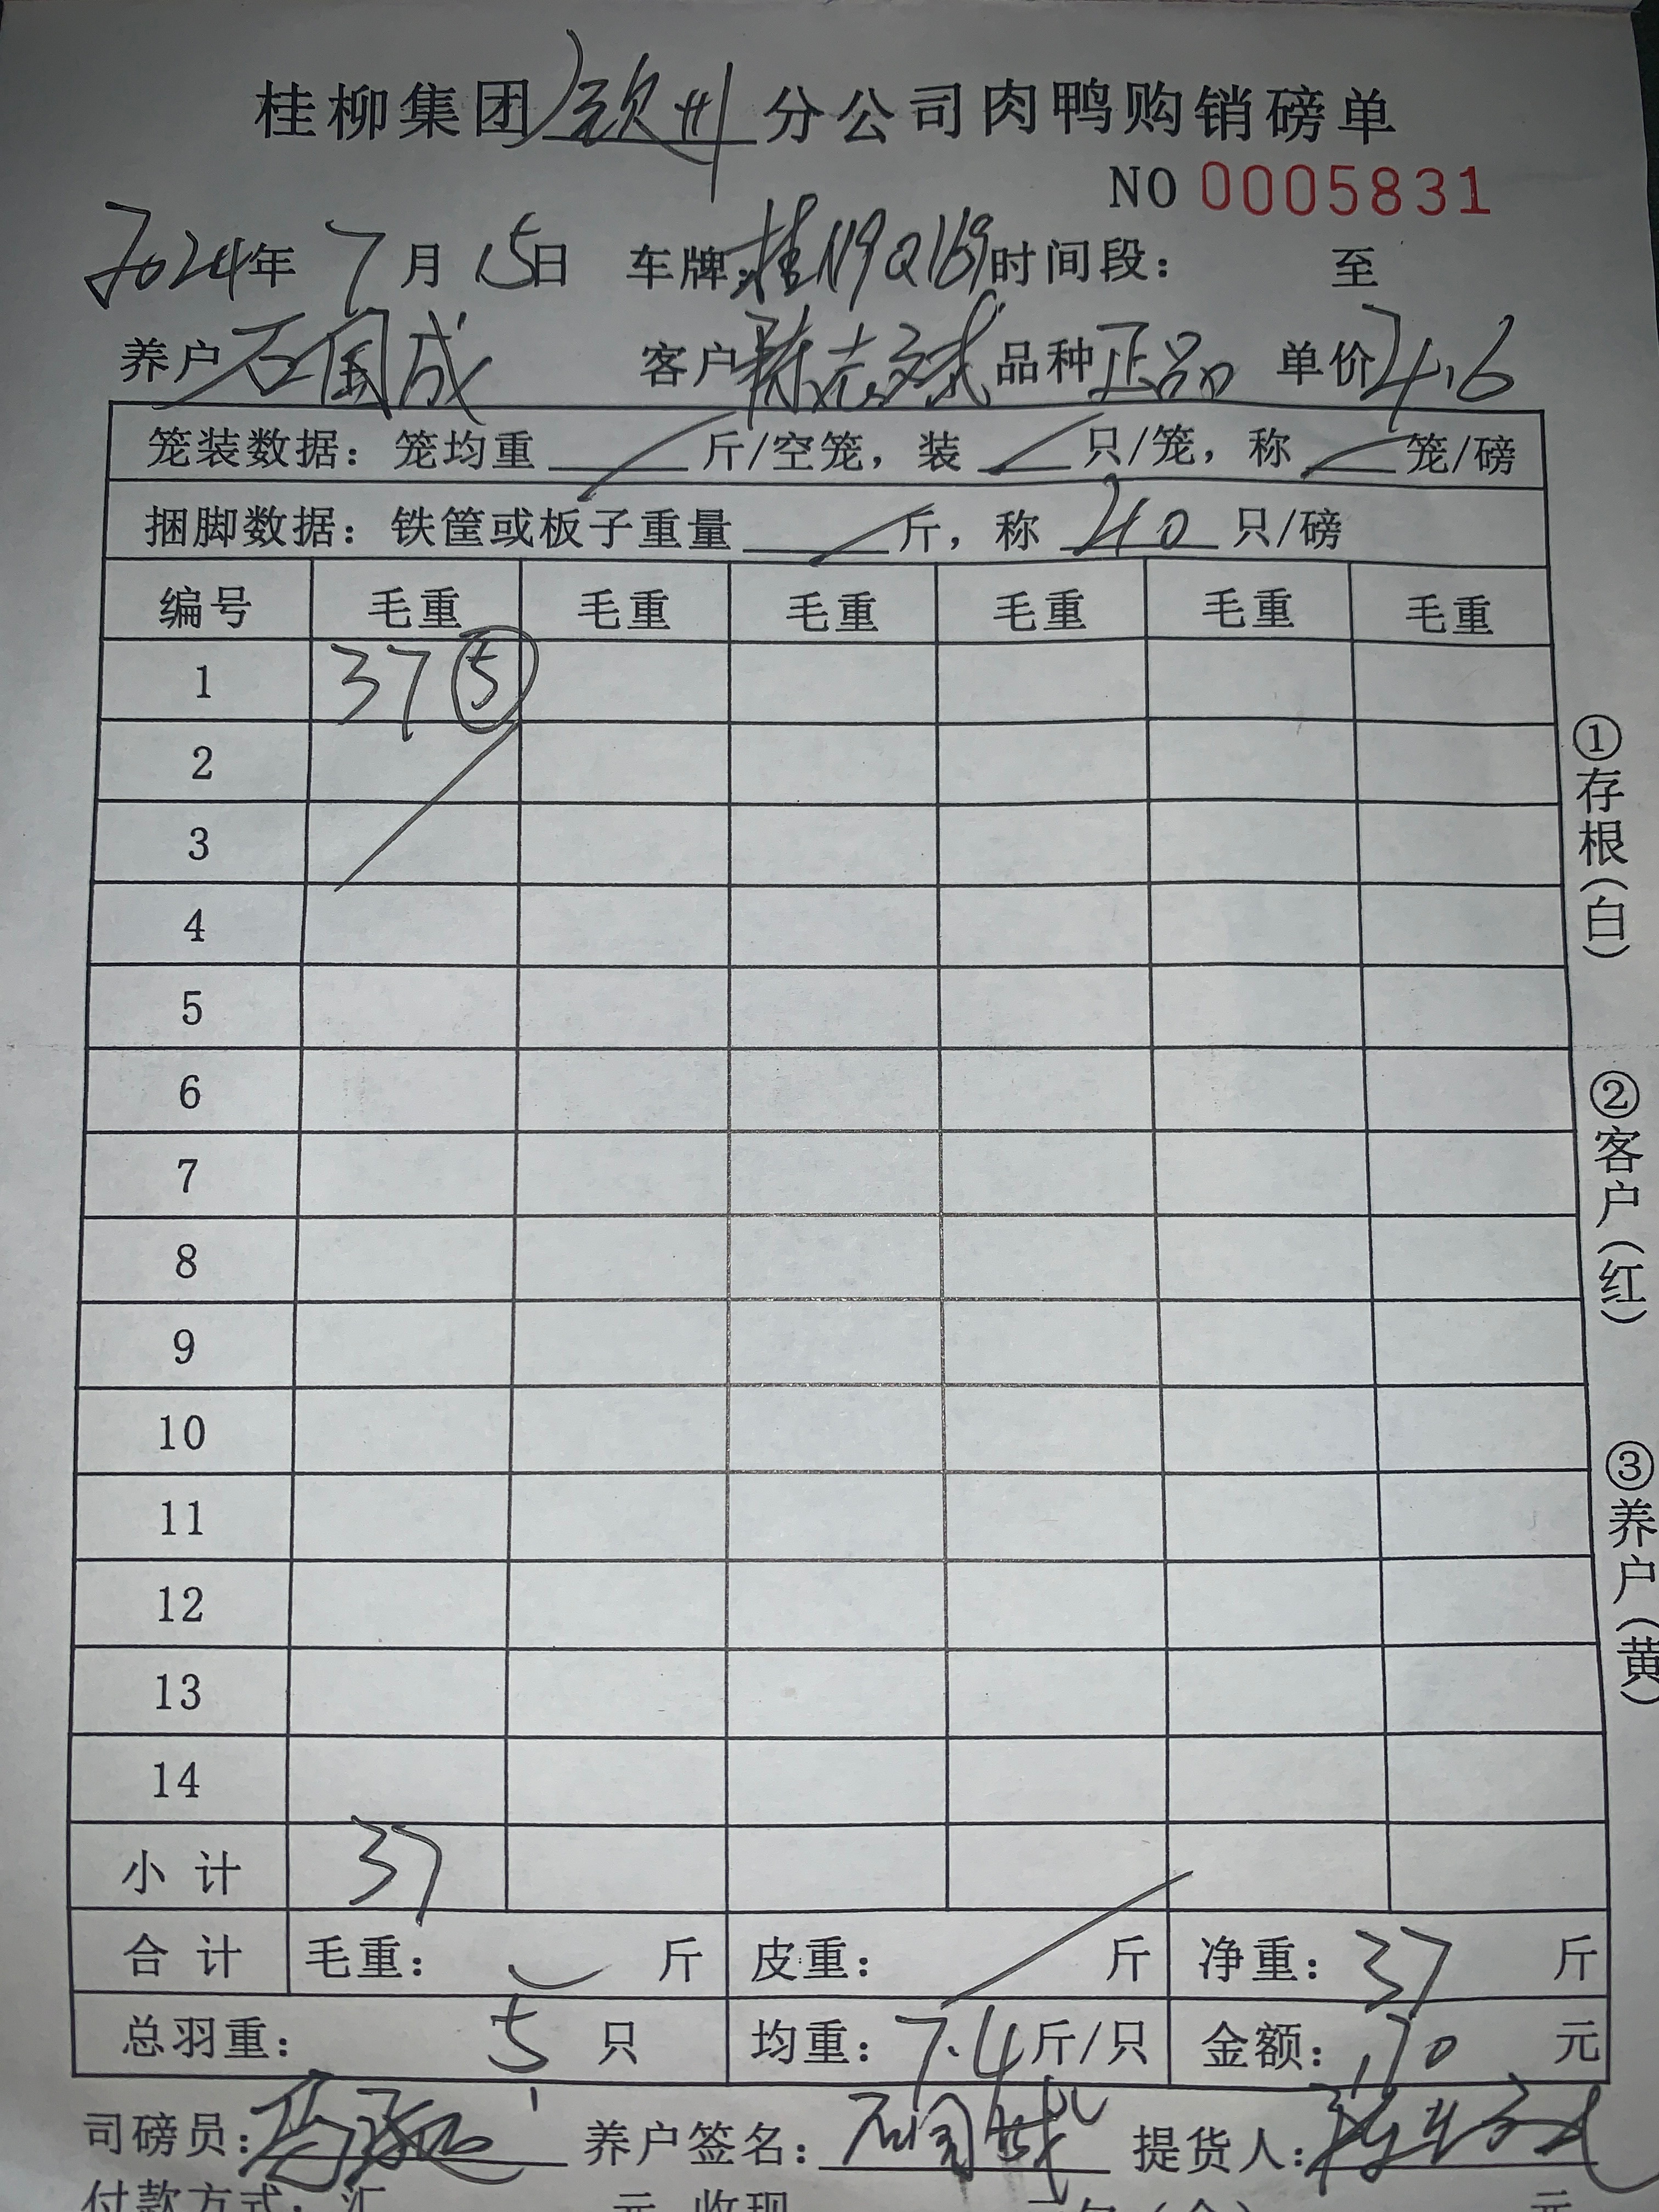 桂柳集团钦州分公司肉鸭购销磅单
NO 0005831
2024年 7月 15日 车牌:桂N9Q169时间段: 至
养户石国成 客户陈志斌 品种正品 单价4.6
笼装数据:笼均重 斤/空笼,装 只/笼,称 笼/磅
捆脚数据:铁筐或板子重量 斤,称 40 只/磅
编号 毛重 毛重 毛重 毛重 毛重 毛重
1 37 ⑤
2
3
4
5
6
7
8
9
10
11
12
13
14
小计 37
合计 毛重: 斤 皮重: 斤 净重:37 斤
总羽重: 5 只 均重:7.4斤/只 金额:170 元
司磅员: 养户签名:石国成 提货人:
付款方式:汇 元 收现
①存根(白)
②客户(红)
③养户(黄)